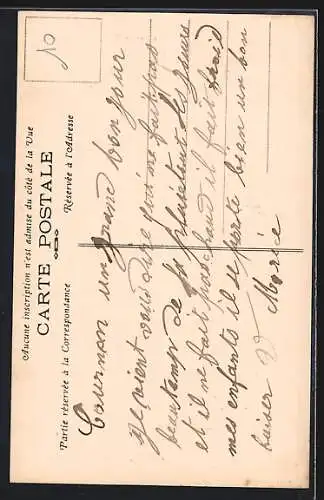 10
Aucune inscription n'est admise du côté de la Vue
CARTE POSTALE
Partie réservée à la Correspondance
Réservée à l'Adresse
un grand bon jour
je vient vous dire
beautemp de la pluie tout les jours
et il ne fait pas chaud il fait froid
mes enfants il se porte bien un bon
baiser V Marie